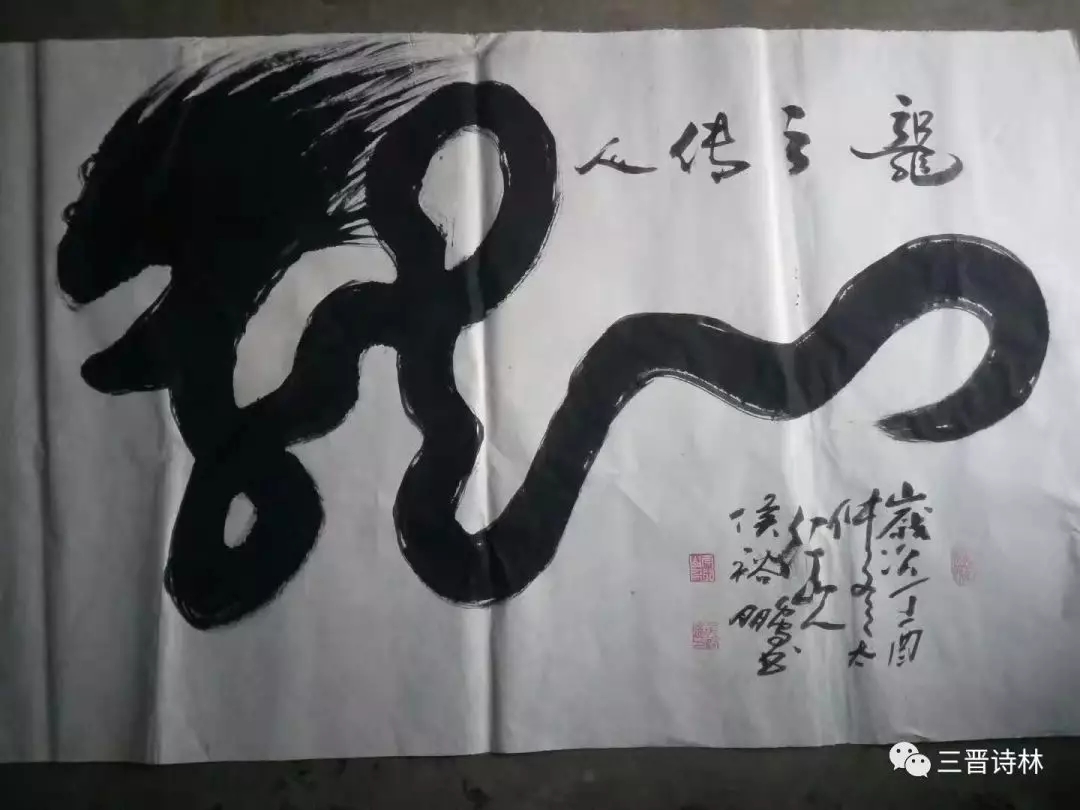 龍之传人
歲次丁酉
仲冬太
行山人
侯裕鹏书
三晋诗林